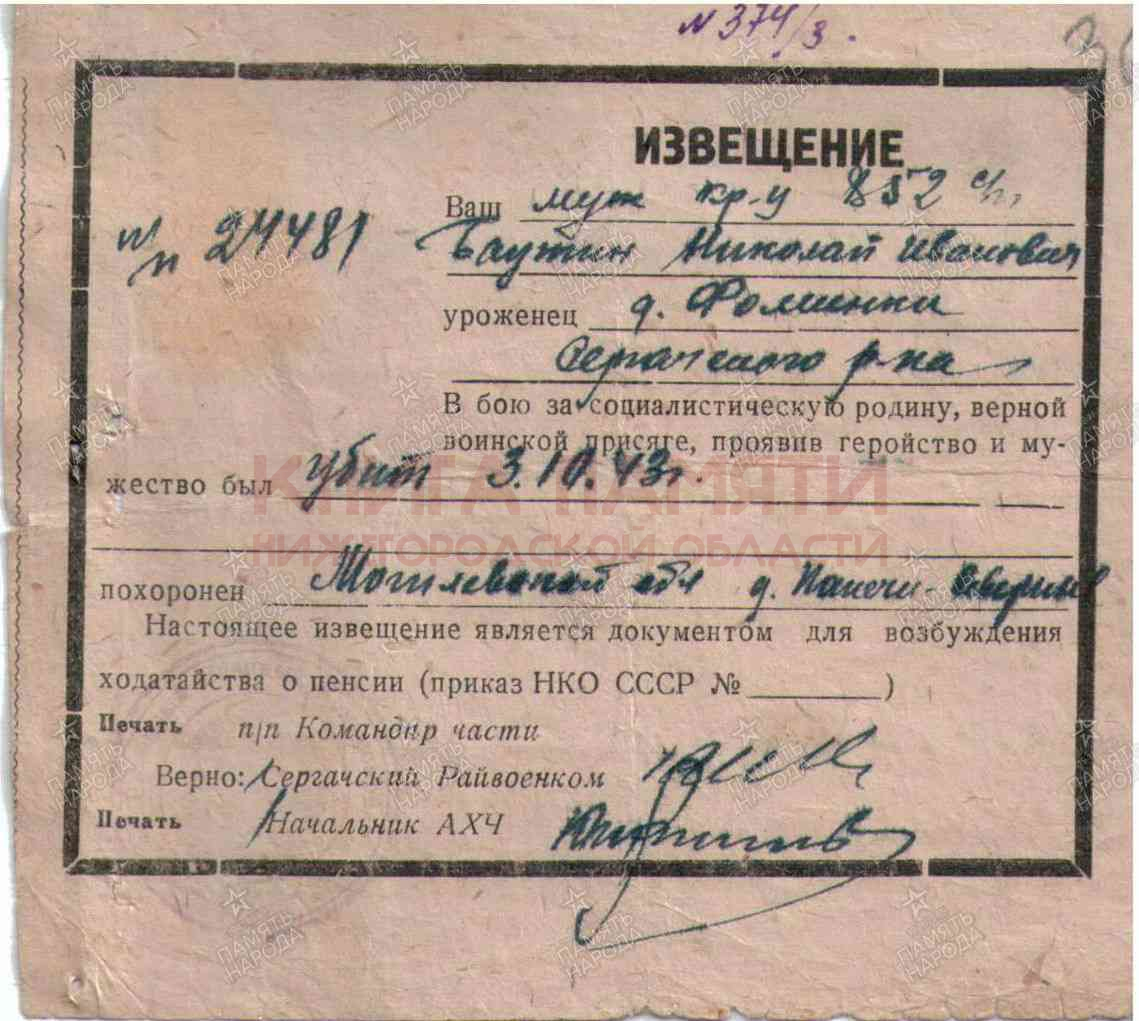 № 374/3.
ИЗВЕЩЕНИЕ
Ваш муж кр-ц 852 с/п
п/п 24481
Баутин Николай Иванович
уроженец д. Фоминки
Сергачского р-на
В бою за социалистическую родину, верной
воинской присяге, проявив геройство и му-
жество был убит 3.10.43г.
похоронен Могилевской обл д.
Настоящее извещение является документом для возбуждения
ходатайства о пенсии (приказ НКО СССР № ________)
Печать п/п Командир части
Верно: Сергачский Райвоенком
Печать Начальник АХЧ
КНИГА ПАМЯТИ
НИЖЕГОРОДСКОЙ ОБЛАСТИ
ПАМЯТЬ
НАРОДА